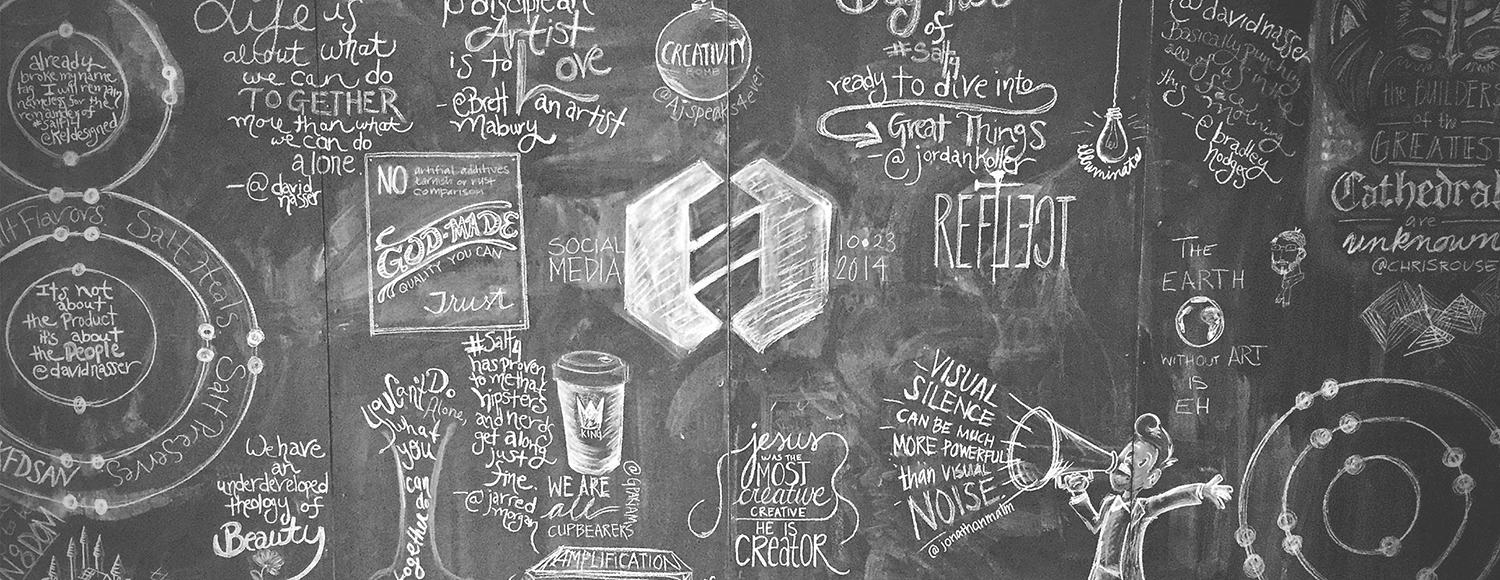 already
broke my name
tag. I will remain
nameless for the
remainder of
#salt14
@keldesigned
Life is
about what
we can do
TOGETHER
more than what
we can do
alone.
-@david
nasser
Artist
is to Love
-@Brett
Mabury
an artist
CREATIVITY
BOMB
@Ajspeaks4ever
of
#Salt14
ready to dive into
Great Things
-@jordanholler
illuminate
@davidnasser
Basically punching
all of us in the
face this
morning
-@bradley
hodges
the BUILDERS
of the
GREATEST
Cathedral
are
unknown
@CHRISROUSE
NO artificial additives
tarnish or rust
comparison
GOD-MADE
QUALITY YOU CAN
Trust
SOCIAL
MEDIA
10•23
2014
REFLECT
THE
EARTH
WITHOUT ART
IS
EH
Flavors
Salt Heals
Salt Preserves
It's not
about
the Product
it's about
the People
@davidnasser
We have
an
underdeveloped
theology of
Beauty
You Can't Do
Alone,
what
you
can
do
together
#Salt14
has proven
to me that
hipsters
and nerds
get along
just
fine.
-@jarred
KING
WE ARE
all
CUPBEARERS
AMPLIFICATION
jesus
WAS THE
MOST
creative
CREATIVE
HE IS
CREATOR
VISUAL
SILENCE
CAN BE MUCH
MORE POWERFUL
than VISUAL
NOISE.
@jonathanmalm